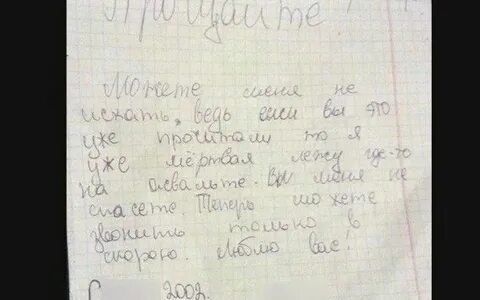 Прощайте!
Можете меня не
искать, ведь если вы это
уже прочитали то я
уже мёртвая лежу где-то
на асвальте. Вы меня не
спасете. Теперь можете
звонить только в
скорою. Люблю вас!
2002.